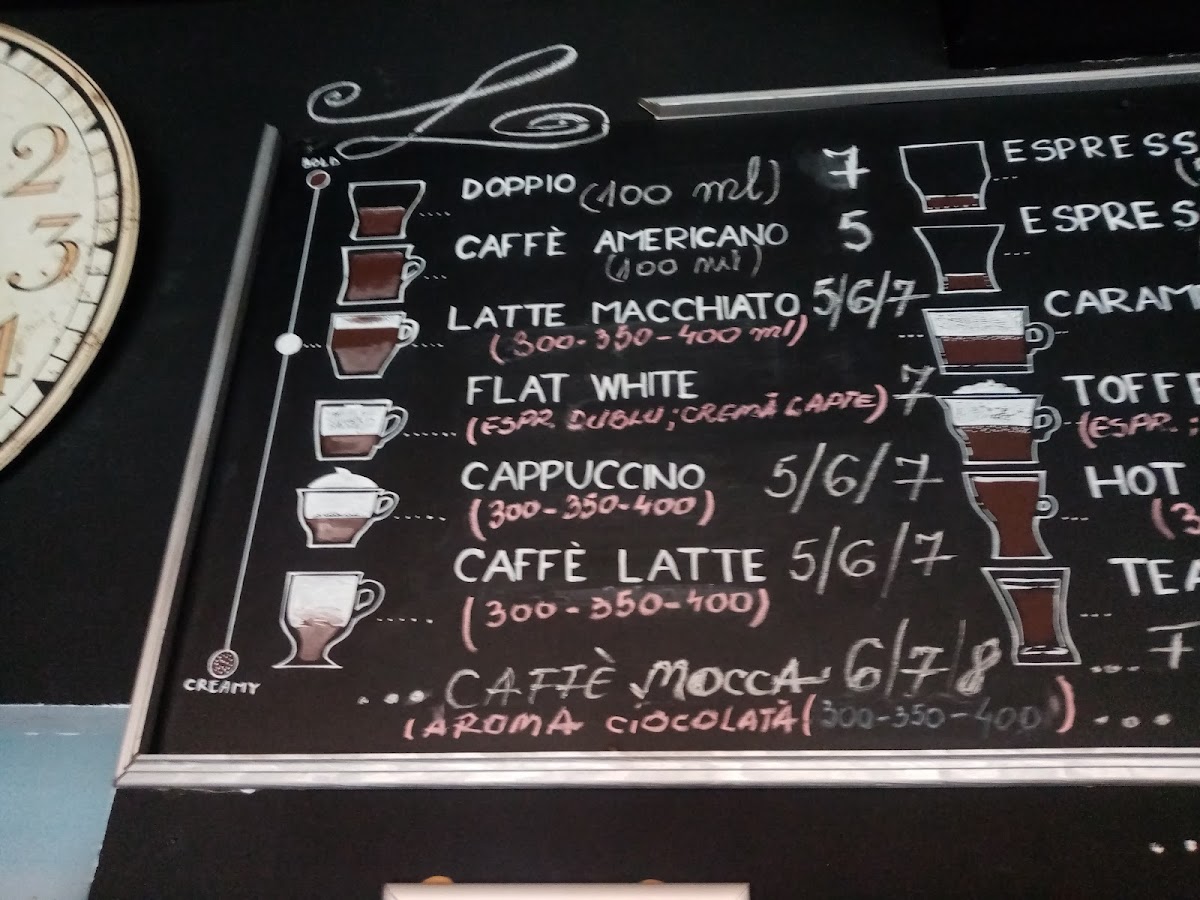 2
3
4
BOLD
DOPPIO (100 ml) 7
CAFFÈ AMERICANO 5
(100 ml)
LATTE MACCHIATO 5/6/7
(300-350-400 ml)
FLAT WHITE 7
(ESPR. DUBLU; CREMĂ LAPTE)
CAPPUCCINO 5/6/7
(300-350-400)
CAFFÈ LATTE 5/6/7
(300-350-400)
CREAMY
... CAFFÈ MOCCA 6/7/8
(AROMA CIOCOLATĂ (300-350-400)
ESPRESS
ESPRES
CARAM
TOFF
(ESPR. ;
HOT
(3
TEA